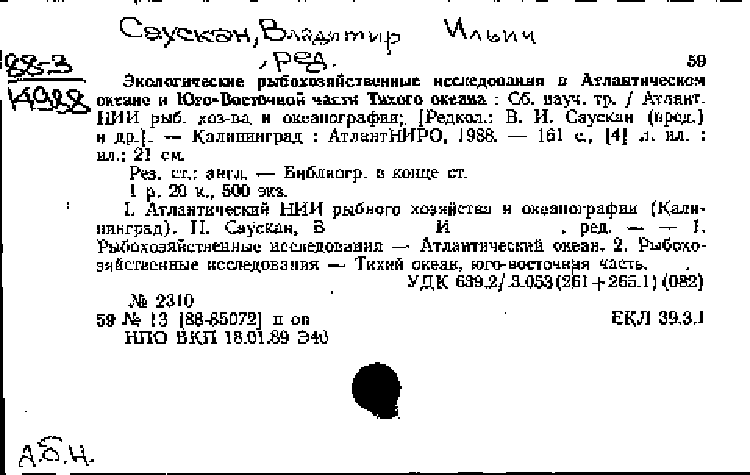 Саускан, Владимир Ильич
, ред.
88-3
К988
59
Экологические рыбохозяйственные исследования в Атлантическом
океане и Юго-Восточной части Тихого океана : Сб. науч. тр. / Атлант.
НИИ рыб. хоз-ва и океанографии; [Редкол.: В. И. Саускан (пред.)
и др.]. — Калининград : АтлантНИРО, 1988. — 161 с., [4] л. ил. :
ил.; 21 см.
Рез. ст.: англ. — Библиогр. в конце ст.
1 р. 20 к., 500 экз.
I. Атлантический НИИ рыбного хозяйства и океанографии (Кали-
нинград). II. Саускан, В И , ред. — — 1.
Рыбохозяйственные исследования — Атлантический океан. 2. Рыбохо-
зяйственные исследования — Тихий океан, юго-восточная часть.
УДК 639.2/.3.053(261+265.1)(082)
№ 2310
59 № 13 [88-85072] п оп
ЕКЛ 39.3.1
НПО ВКП 18.01.89 Э40
А.б.Н.